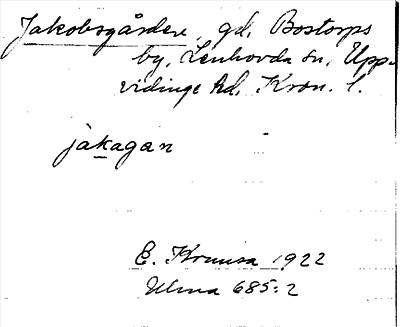 Jakobsgården, gd, Bostorps
by, Lenhovda sn, Upp-
vidinge hd, Kron. l.
jakagan
E. Kruusa 1922
Ulma 685:2